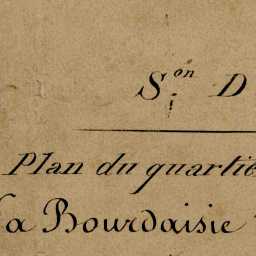 S.on D
Plan du quartie
la Bourdaisie